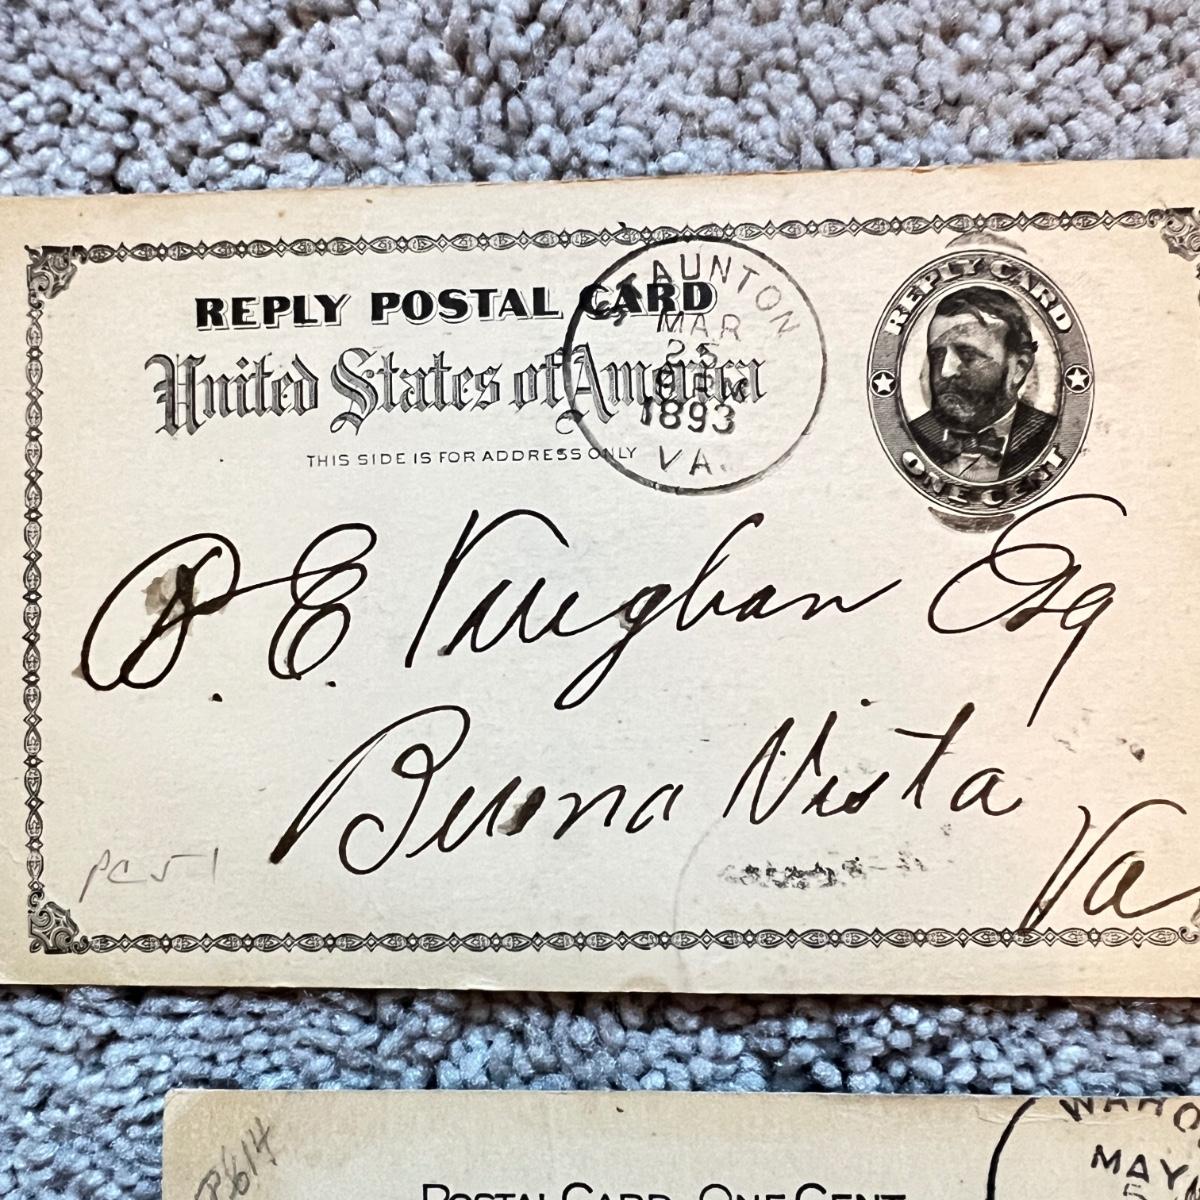 REPLY POSTAL CARD
United States of America
THIS SIDE IS FOR ADDRESS ONLY
STAUNTON
MAR
25
1893
VA.
REPLY CARD
ONE CENT
E. Vaughan Esq
Buena Vista
Va
PC 51
P614
POSTAL CARD ONE CENT
MAY